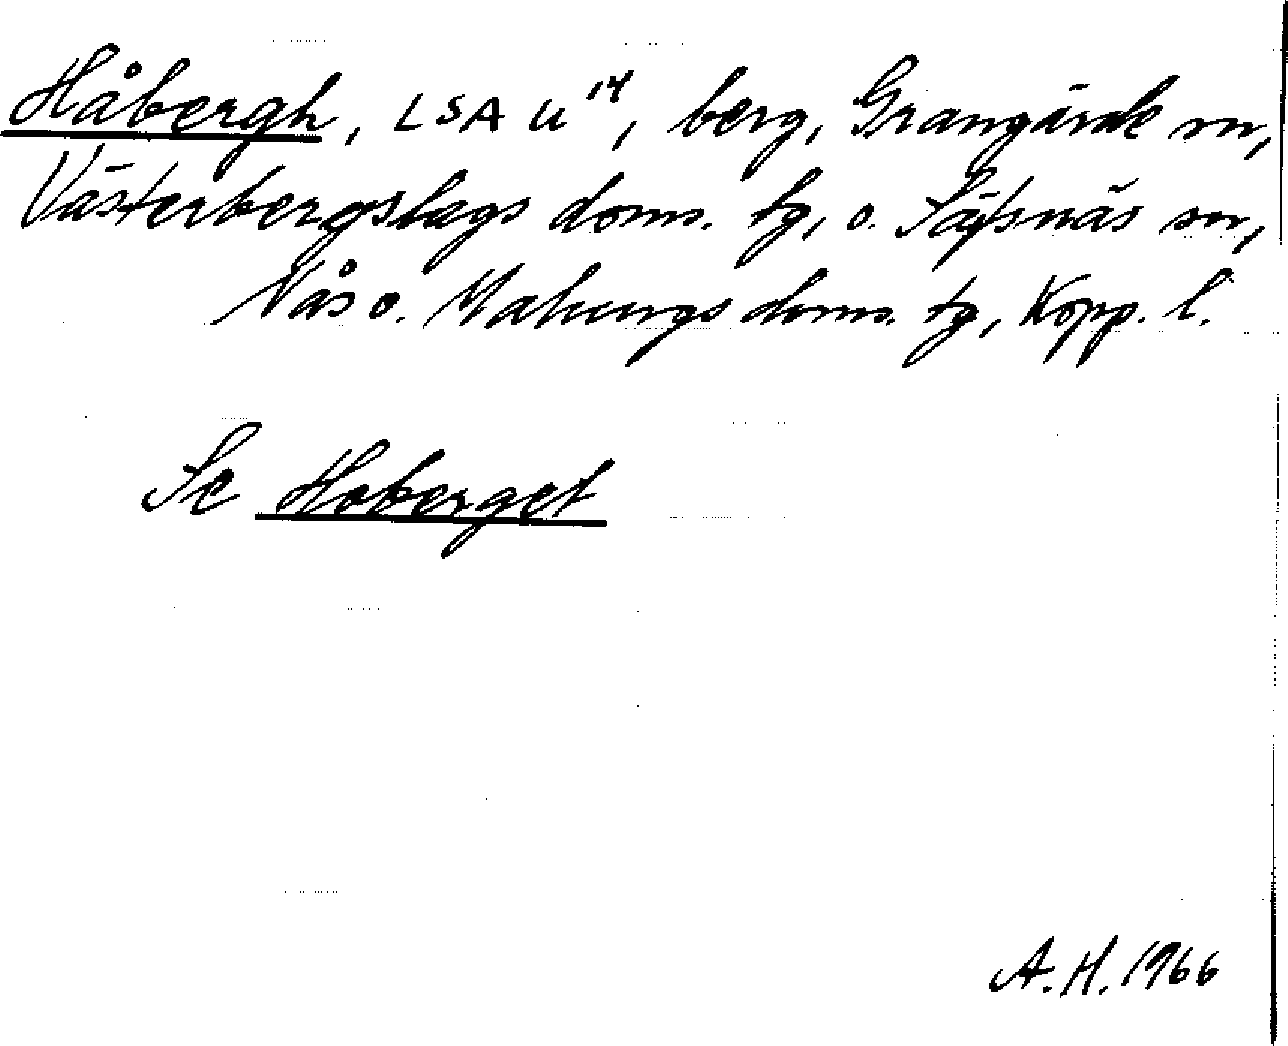 Håbergh, LSA U¹⁴, berg, Grangärde sn,
Västerbergslags doms. tg, o. Säfsnäs sn,
Nås o. Malungs doms. tg, Kopp. l.
Se Hoberget
A.H. 1966